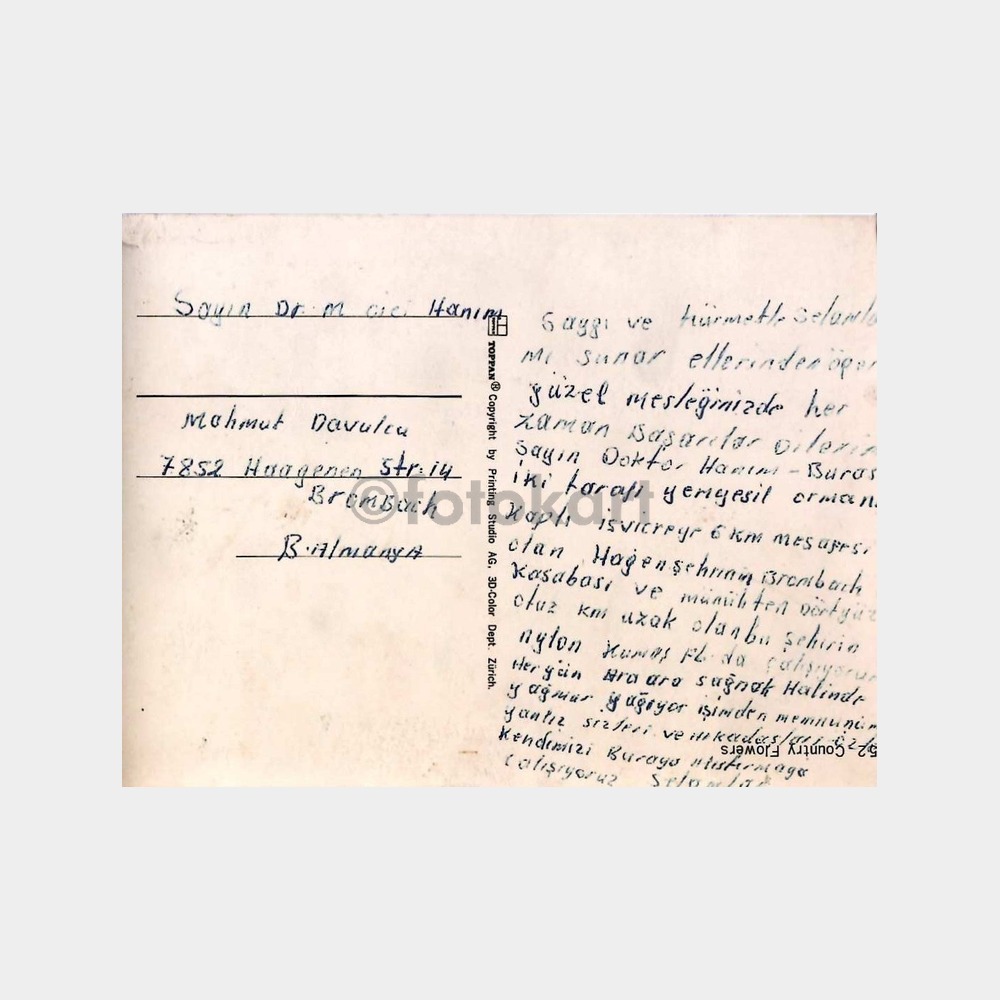 Sayın Dr. M cici Hanım
Mahmut Davulcu
7852 Haagenen Str:14
Brombach
B.Almanya
TOPPAN® Copyright by Printing Studio AG, 3D-Color Dept. Zürich.
Saygı ve hürmetle Selamla
mı sunar ellerinden öper
güzel mesleğinizde her
zaman Başarılar Dilerim
Sayın Doktor Hanım - Buras
iki tarafı yemyeşil orman
Kaplı isvicreye 6 km mesafesi
olan Hagen şehrinin Brombach
Kasabası ve münihten dörtyüz
otuz km uzak olan bu şehirin
nylon Kumaş Fb. da çalışıyorum
Hergün Ara ara sağnak Halinde
yağmur yağıyor işimden memnunum
yanlız sizleri ve arkadaşları özle
Kendimizi Buraya alıştırmaya
çalışıyoruz Selamlar
52 Country Flowers
©fotokart